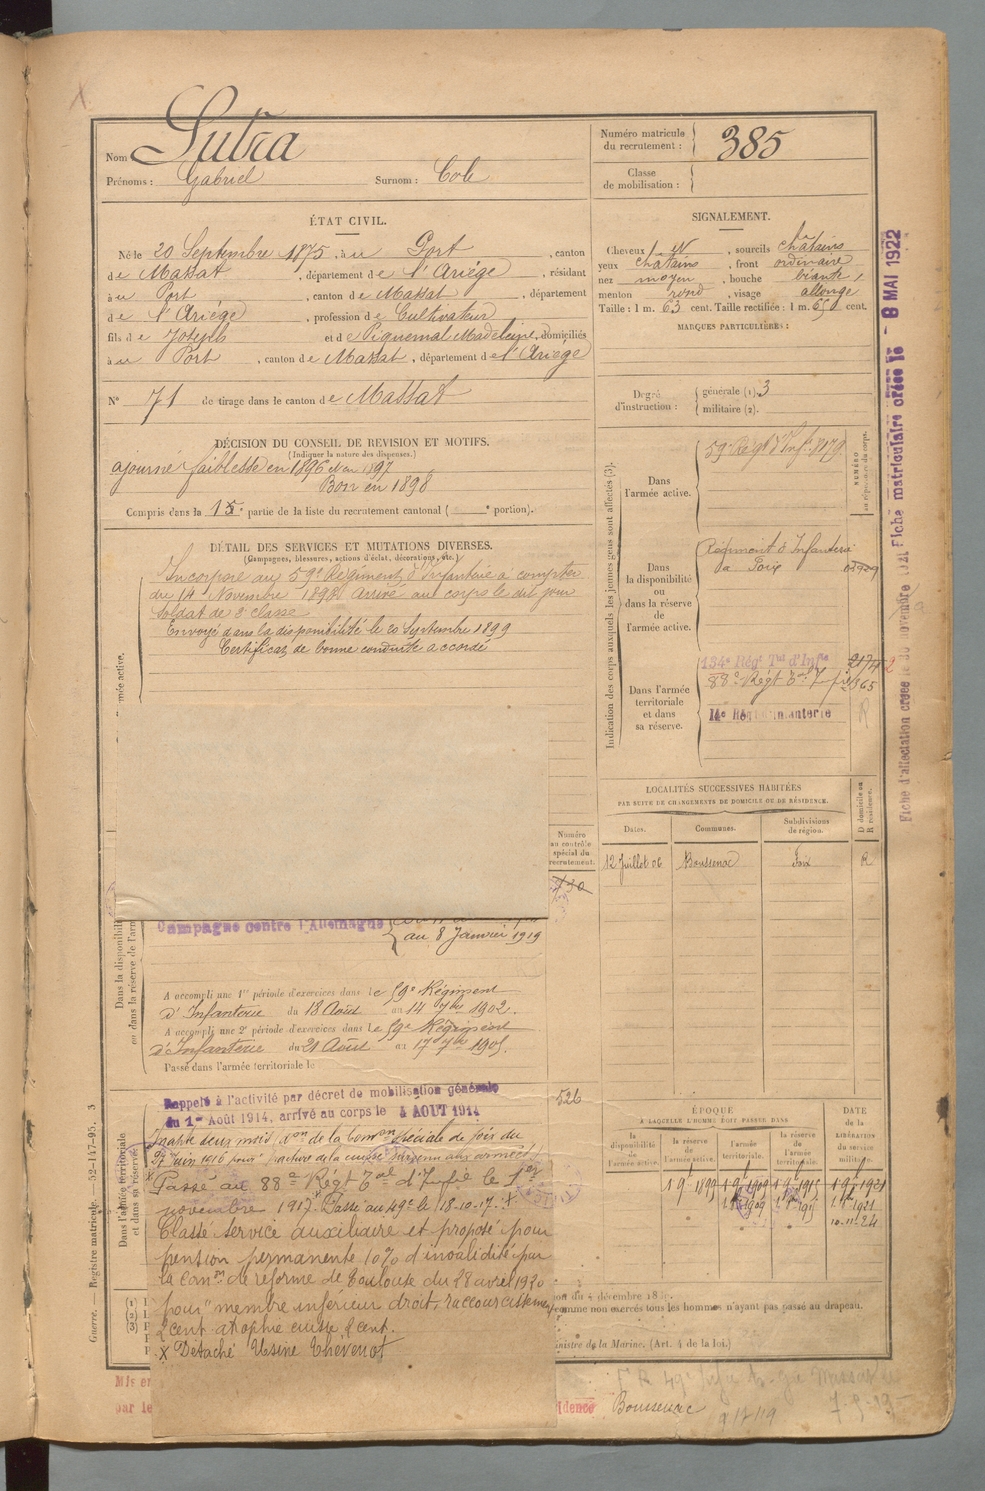 Nom Sutra
Prénoms : Gabriel Surnom : Cole
Numéro matricule du recrutement : 385
Classe de mobilisation :
ÉTAT CIVIL.
Né le 20 Septembre 1875, à u Port, canton
de Massat, département de l'Ariège, résidant
à u Port, canton de Massat, département
de l'Ariége, profession de Cultivateur
fils de Joseph et de Piquemal Madeleine, domiciliés
à u Port, canton de Massat, département de l'Ariège
N° 71 de tirage dans le canton de Massat
DÉCISION DU CONSEIL DE REVISION ET MOTIFS.
(Indiquer la nature des dispenses.)
ajourné faiblesse en 1896 et en 1897
Bon en 1898
Compris dans la 1e partie de la liste du recrutement cantonal ( e portion).
DÉTAIL DES SERVICES ET MUTATIONS DIVERSES.
(Campagnes, blessures, actions d'éclat, décorations, etc.)
Incorporé au 59e Régiment d'Infanterie à compter
du 14 Novembre 1898. Arrivé au corps le dit jour
Soldat de 2e classe
Envoyé dans la disponibilité le 20 Septembre 1899
Certificat de bonne conduite accordé
SIGNALEMENT.
Cheveux et, sourcils châtains
yeux châtains, front ordinaire
nez moyen, bouche béante,
menton rond, visage allongé
Taille : 1 m. 63 cent. Taille rectifiée : 1 m. 650 cent.
MARQUES PARTICULIÈRES :
Degré d'instruction : générale (1). 3
militaire (2).
Indication des corps auxquels les jeunes gens sont affectés (3).
NUMÉRO
au répertoire du corps.
Dans l'armée active.
59e Régt d'Infie 8179
Dans la disponibilité ou dans la réserve de l'armée active.
Régiment d'Infanterie
de Foix
Dans l'armée territoriale et dans sa réserve.
134e Régt Tal d'Infie
88e Régt Tal Infie 365
14e Régt Infanterie
R
LOCALITÉS SUCCESSIVES HABITÉES
PAR SUITE DE CHANGEMENTS DE DOMICILE OU DE RÉSIDENCE.
Dates. Communes. Subdivisions de région. D domicile ou R résidence.
12 Juillet 06 Boussenac Foix R
Numéro au contrôle spécial du recrutement.
Campagne contre l'Allemagne
au 8 Janvier 1919
A accompli une 1re période d'exercices dans le 59e Régiment
d'Infanterie du 18 Août au 14 7bre 1902.
A accompli une 2e période d'exercices dans le 59e Régiment
d'Infanterie du 21 Août au 17 7bre 1905.
Passé dans l'armée territoriale le
Rappelé à l'activité par décret de mobilisation générale
du 1er Août 1914, arrivé au corps le 4 AOUT 1914
526
Inapte deux mois don de la Comon spéciale de Foix du
27 Juin 1916 pour
Passé au 88e Régt Tal d'Infie le 1er
novembre 1917. Passé au 49e le 18-10-17. X
Classé service auxiliaire et proposé pour
pension permanente 10% d'invalidité par
la Comon de réforme de Toulouse du 28 avril 1920
pour "membre inférieur droit, raccourcissement
2 cent atrophie cuisse 2 cent.
X Détaché Usine Thévenot
ÉPOQUE
A LAQUELLE L'HOMME DOIT PASSER DANS
la disponibilité de l'armée active. la réserve de l'armée active. l'armée territoriale. la réserve de l'armée territoriale.
DATE de la LIBÉRATION du service militaire.
1 9 1899 1 9 1909 1 9 1915 1 9 1921
1909 1915 1921
10-11-24
du décembre 18
comme non exercés tous les hommes n'ayant pas passé au drapeau.
ministre de la Marine. (Art. 4 de la loi.)
Mis en
par le
idence Boussenac
armée active.
Dans la disponibilité
ou dans la réserve de l'armée
Dans l'armée territoriale
et dans sa réserve
Guerre. — Registre matricule. — 52-147-95. 3
(1)
(2)
(3)
Fiche matriculaire créée le 8 MAI 1922
Fiche d'affectation créée le 30 novembre 1921